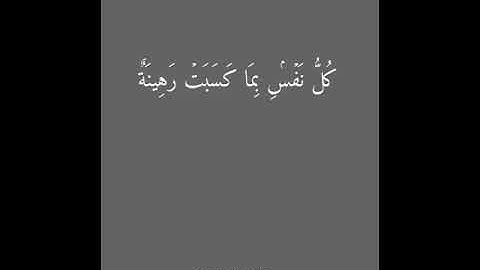 كُلُّ نَفۡسِۭ بِمَا كَسَبَتۡ رَهِينَةٌ